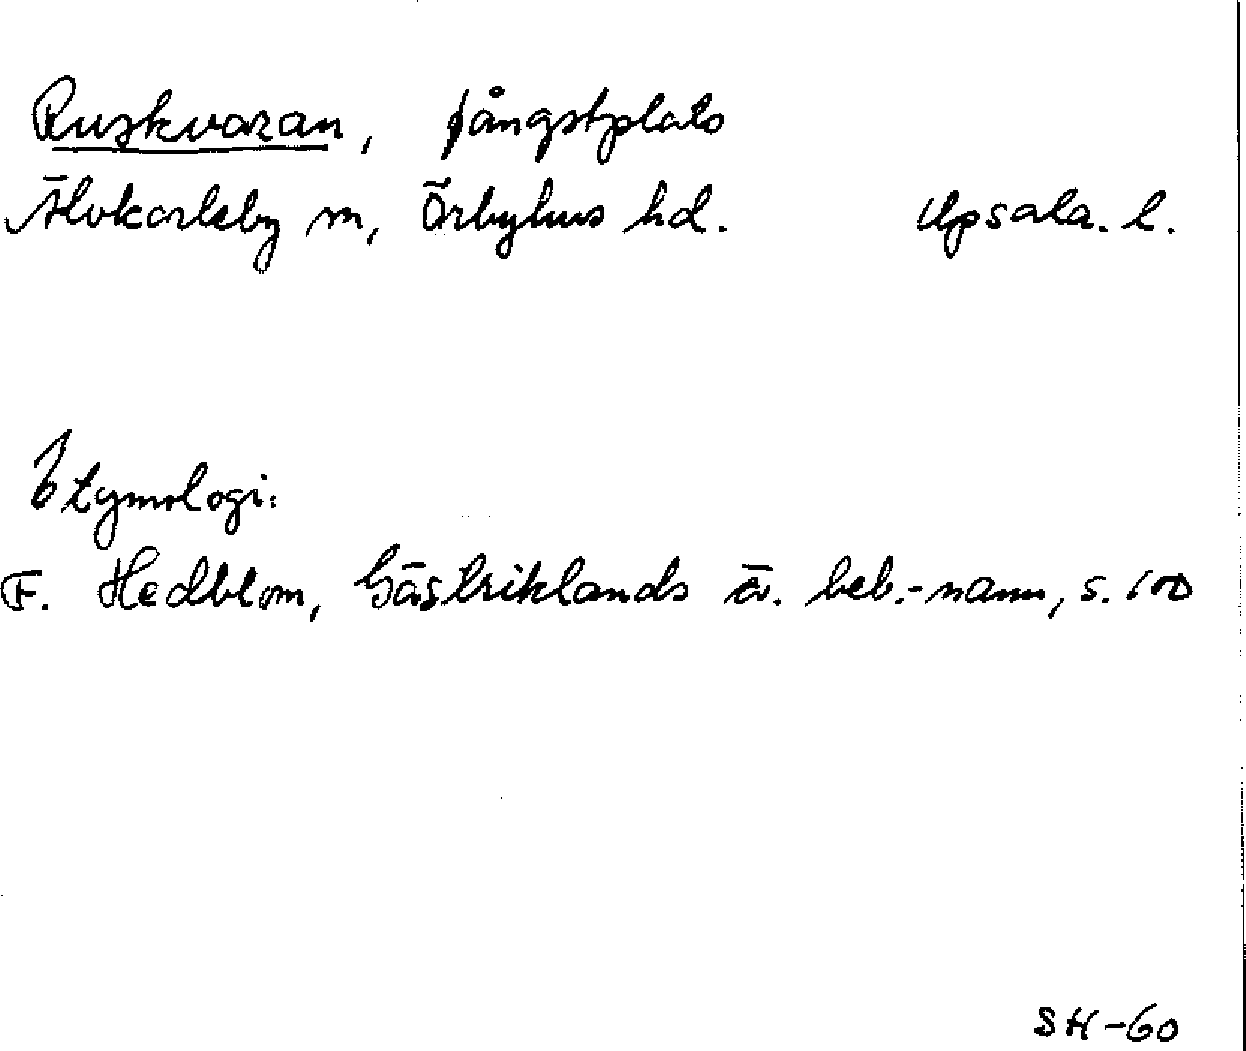 Ruskvaran, fångstplats
Älvkarleby sn, Örbyhus hd. Upsala. l.
Etymologi:
F. Hedblom, Gästriklands ä. beb.-namn, s. 100
SH-60